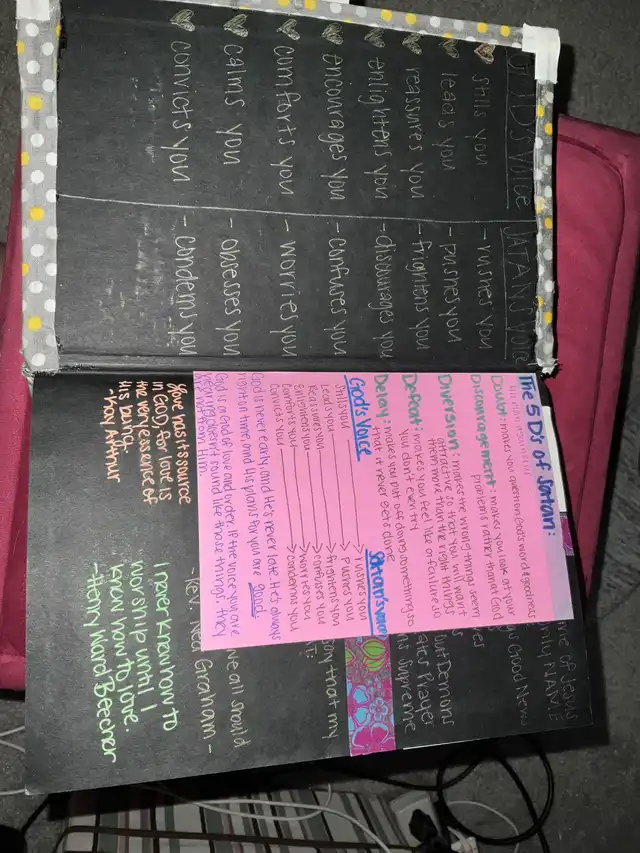 GOD'S VOICE SATAN'S VOICE
stills you - rushes you
leads you - pushes you
reassures you - frightens you
enlightens you - discourages you
encourages you - confuses you
comforts you - worries you
calms you - obsesses you
convicts you - condemns you
The 5 D's of Satan:
Doubt: makes you question God's word & goodness
Discouragement: makes you look at your
problems rather than at God
Diversion: makes the wrong things seem
attractive so that you will want
them more than the right things
Defeat: makes you feel like a failure so
you don't even try
Delay: makes you put off doing something so
that it never gets done
God's Voice Satan's
Stills you > rushes you
Leads you > Pushes you
Reassures you > frightens you
Enlightens you > confuses you
Comforts you > worries you
Convicts you > condemns you
God is never early, and He's never late. He's always
right on time, and His plans for you are Good.
God is a God of love and order. If the voice you are
sound like those things, they
from Him.
of Jesus
NAME
Good News
Out Demons
Prayer
Supreme
say that my
we all should
- Rev. Ned Graham -
Love has its source
in GOD, for love is
the very essence of
His being.
- Kay Arthur
I never knew how to
worship until I
knew how to love.
- Henry Ward Beecher